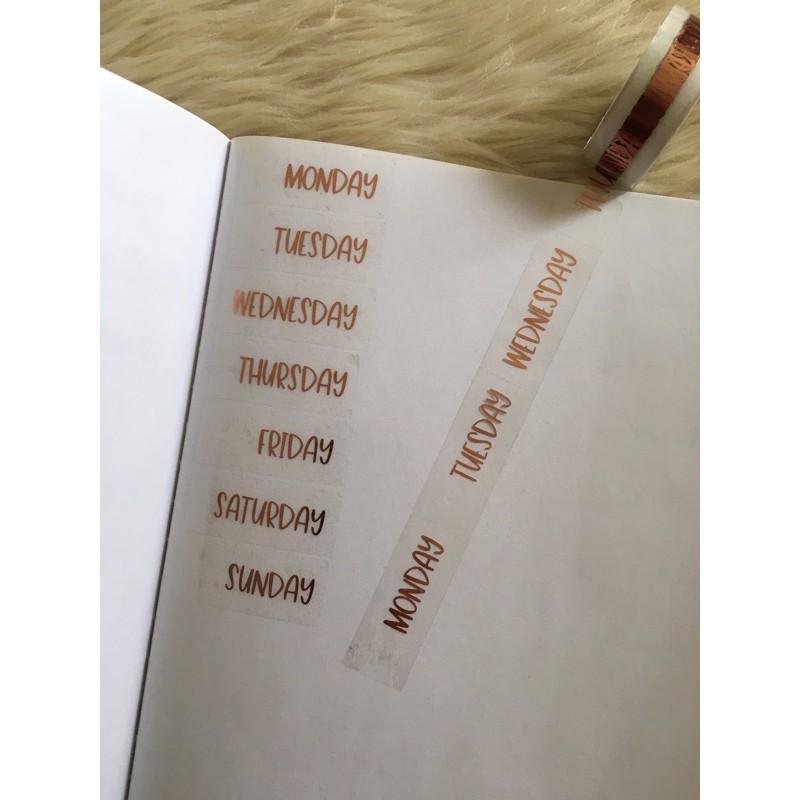 MONDAY
TUESDAY
WEDNESDAY
THURSDAY
FRIDAY
SATURDAY
SUNDAY
MONDAY
TUESDAY
WEDNESDAY